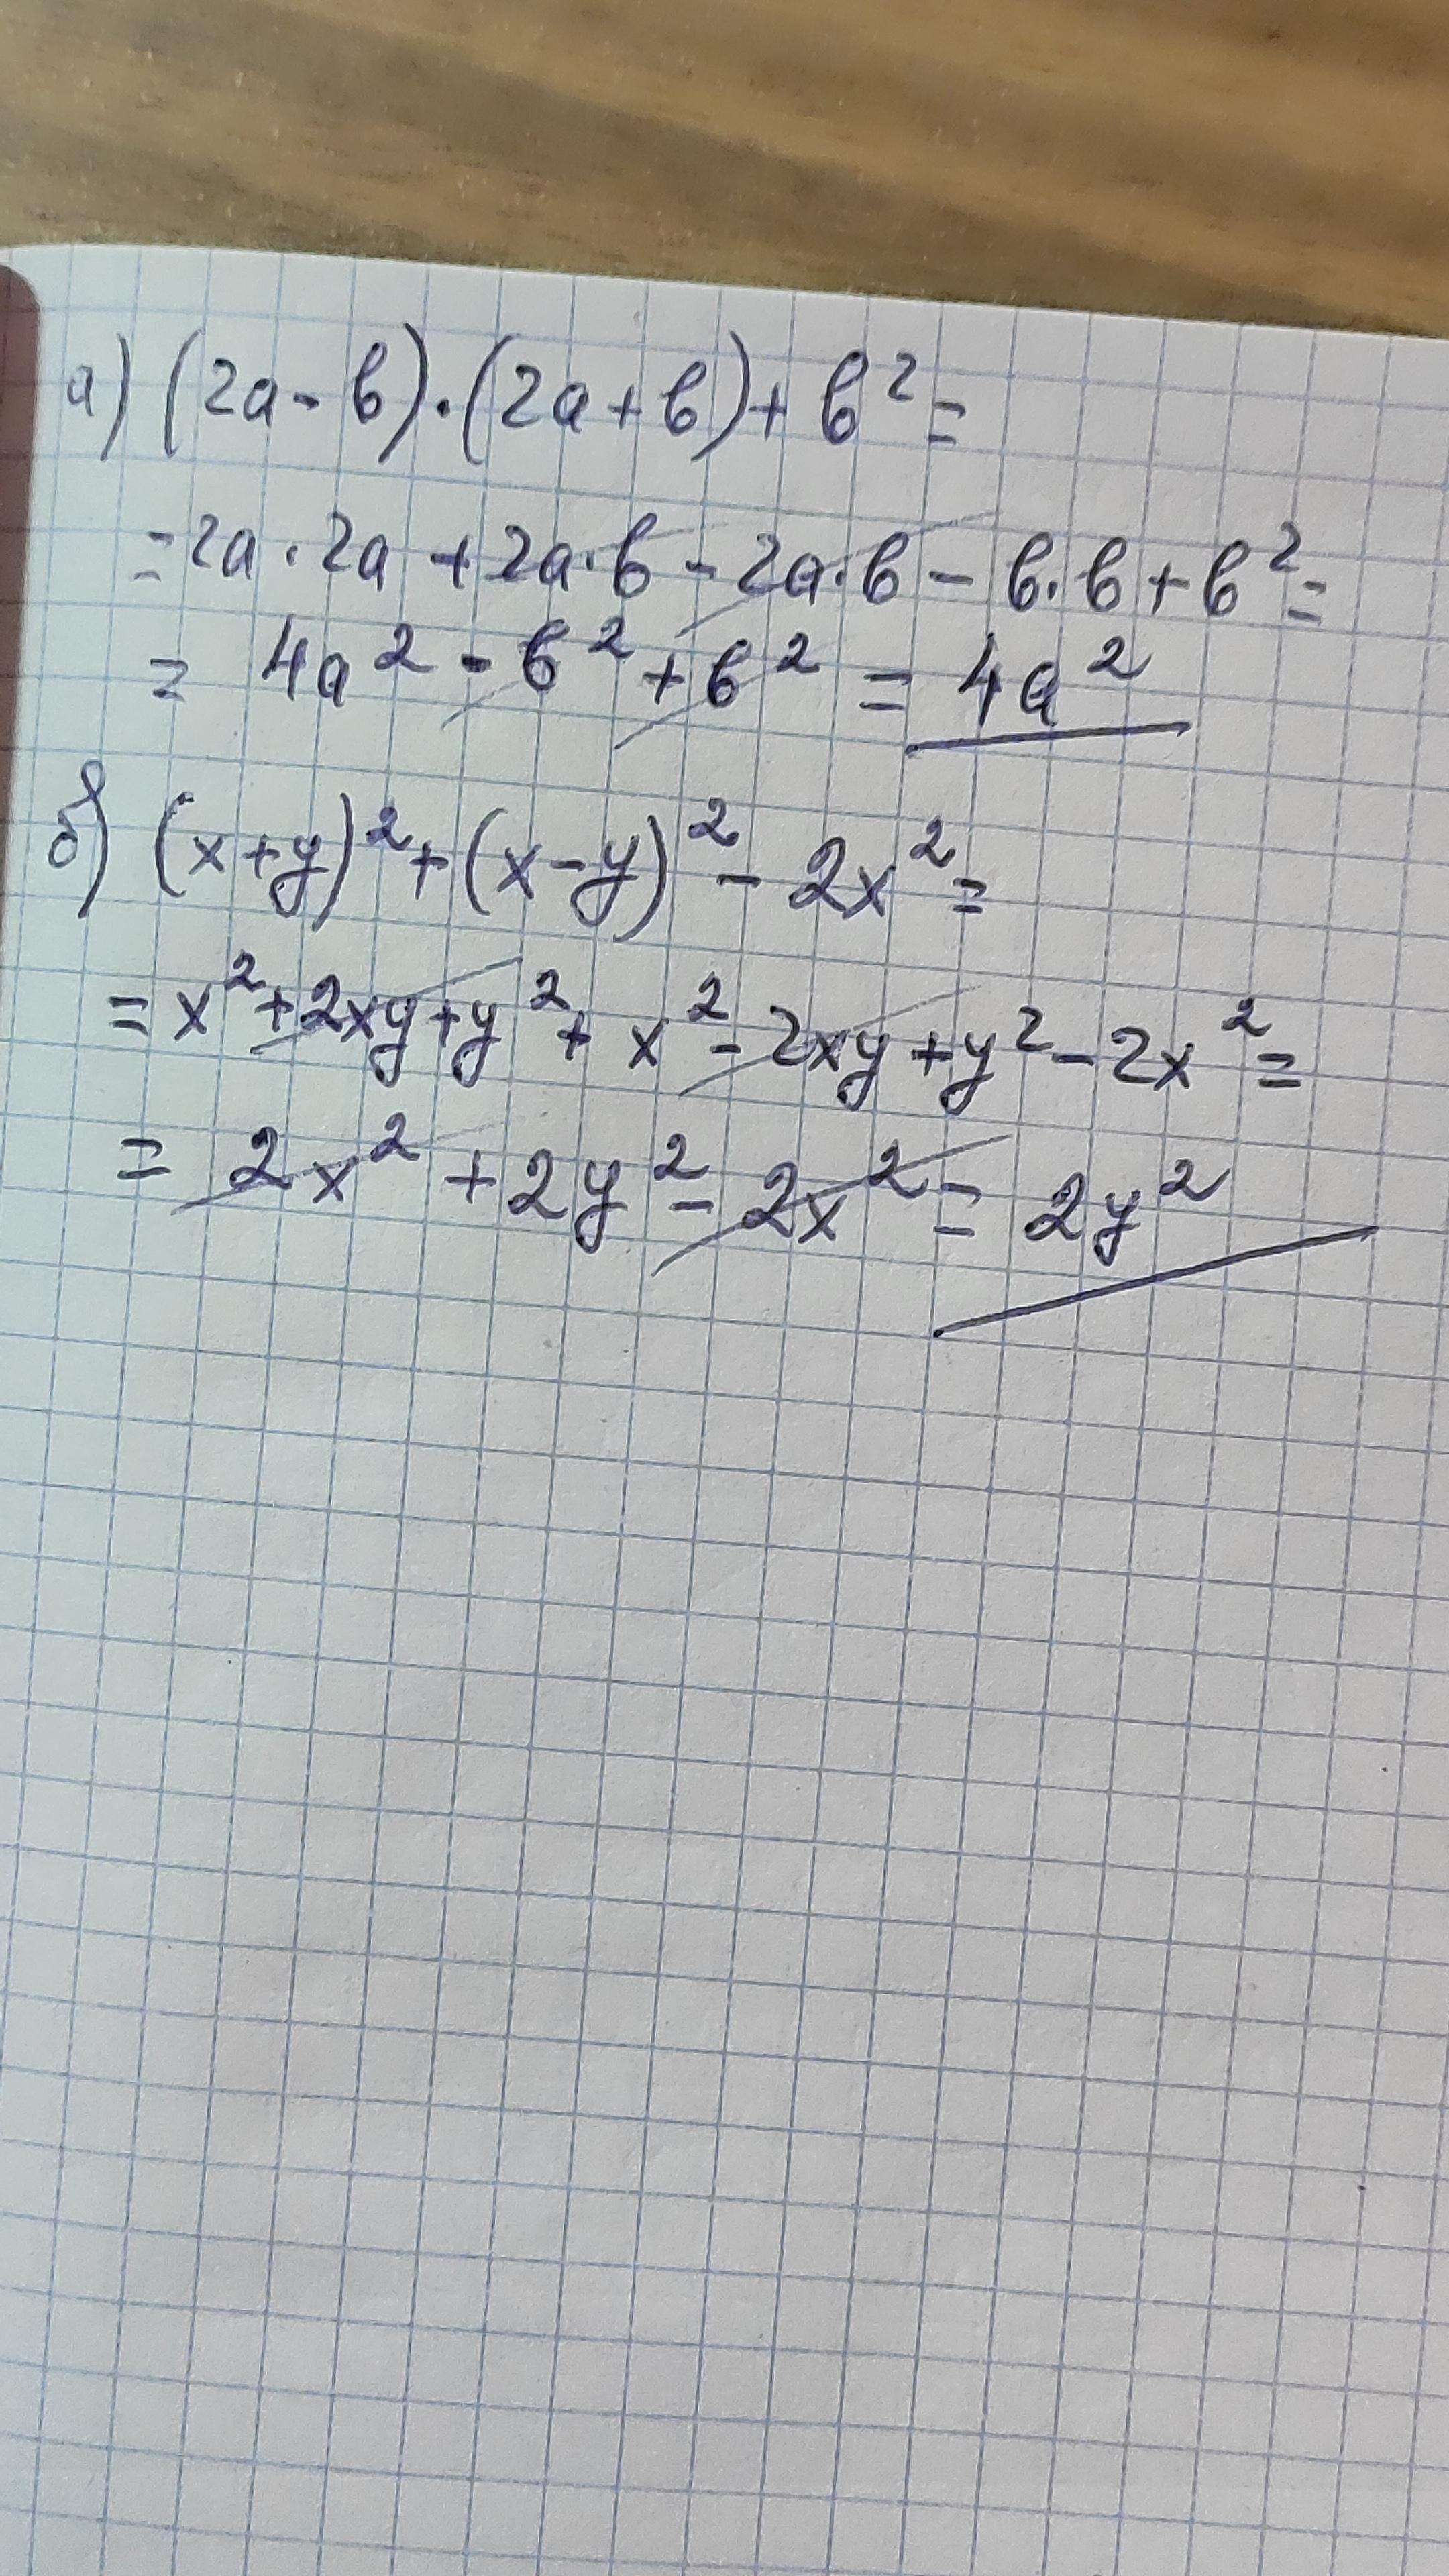 а) (2a - b) · (2a + b) + b² =
= 2a · 2a + 2a · b - 2a · b - b · b + b² =
= 4a² - b² + b² = 4a²
б) (x + y)² + (x - y)² - 2x² =
= x² + 2xy + y² + x² - 2xy + y² - 2x² =
= 2x² + 2y² - 2x² = 2y²